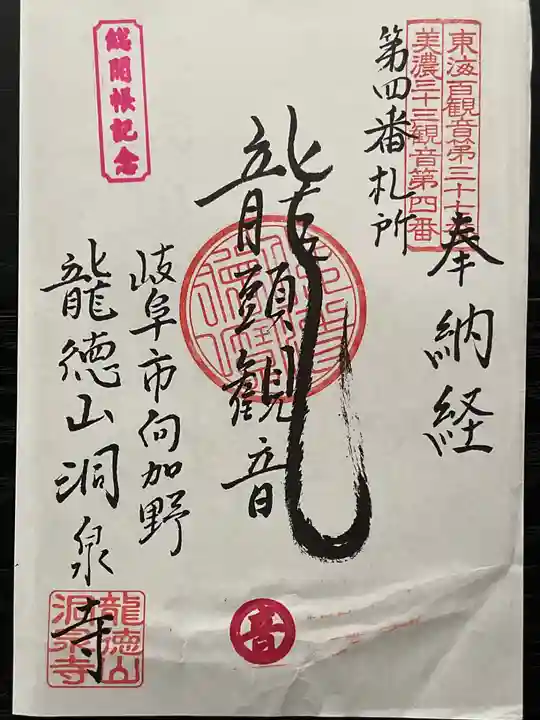 東海百観音第三十七番
美濃三十三観音第四番
奉納経
第四番札所
龍頭観音
岐阜市向加野
龍徳山洞泉寺
総開帳記念
音
龍徳山
洞泉寺